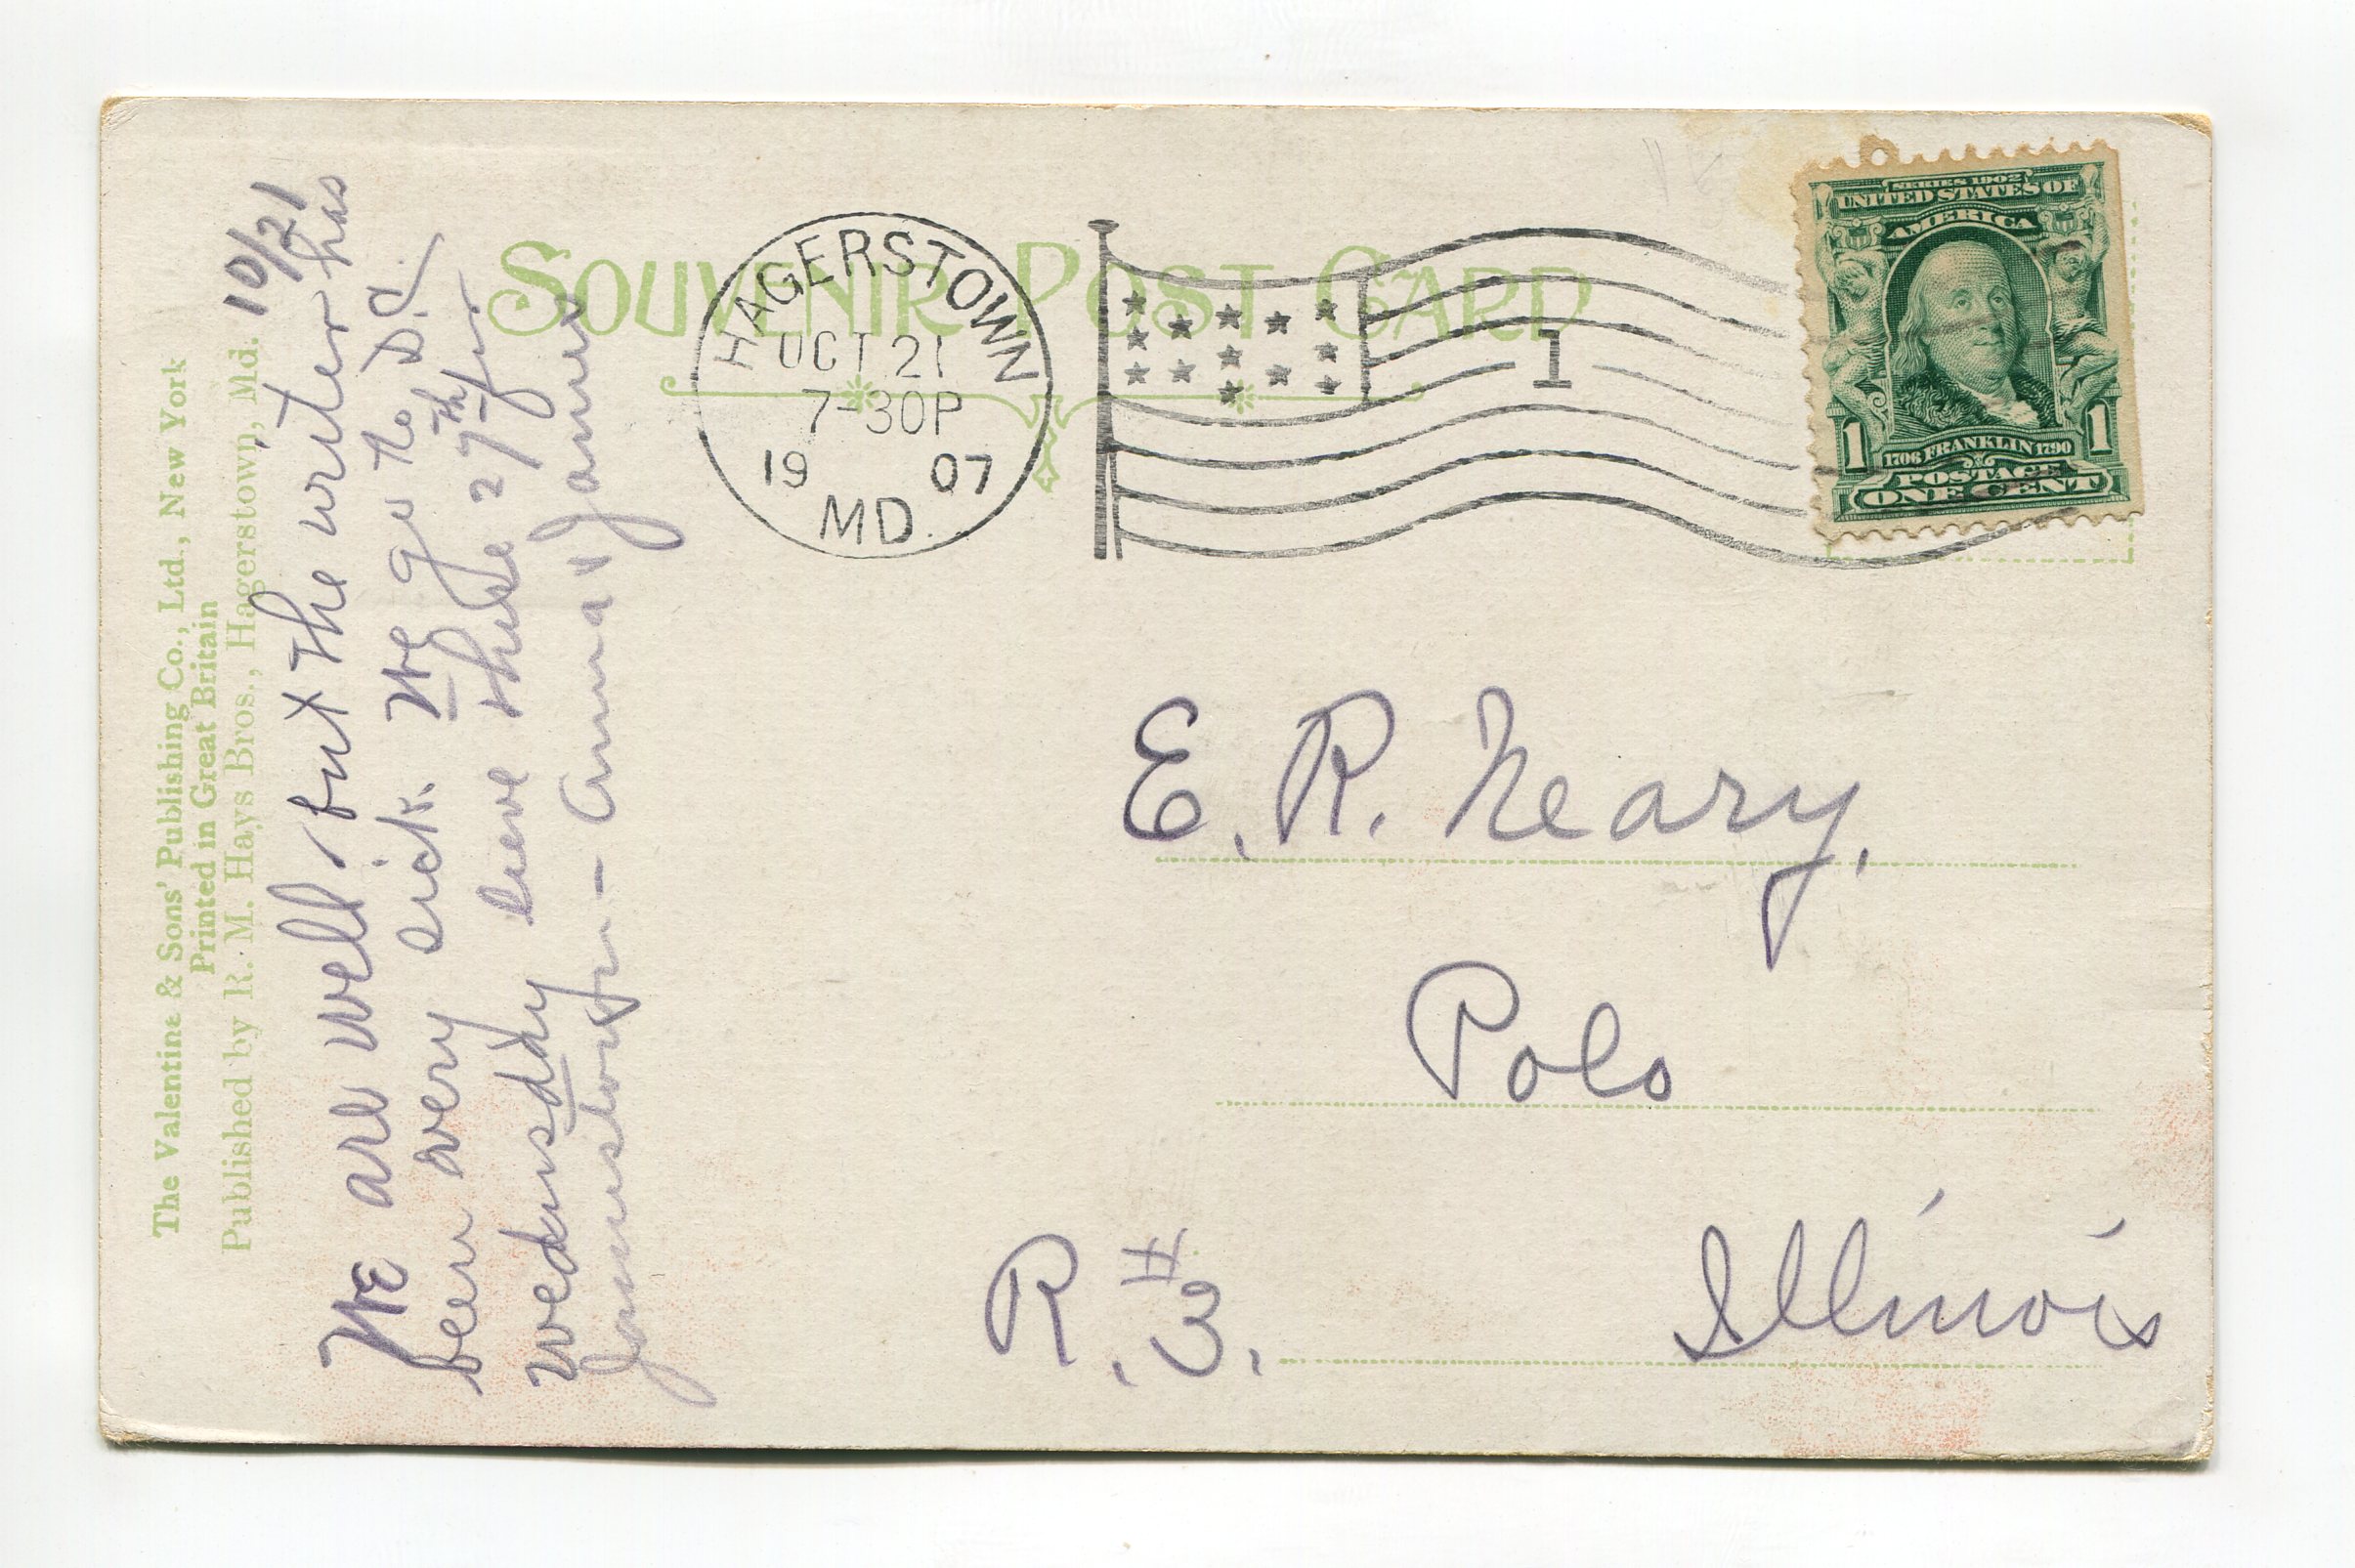 SOUVENIR POST CARD
HAGERSTOWN
OCT 21
7-30P
19 07
MD.
1
SERIES 1902
UNITED STATES OF
AMERICA
1706 FRANKLIN 1790
1 1
POSTAGE
ONE CENT
The Valentine & Sons' Publishing Co., Ltd., New York
Printed in Great Britain
Published by R. M. Hays Bros., Hagerstown, Md.
10/21
We are well, but the writer has
been very sick. We go to D.C.
wednesday leave there 27th for
Jamestown - Anna
E. R. Neary,
Polo
R. #3. Illinois